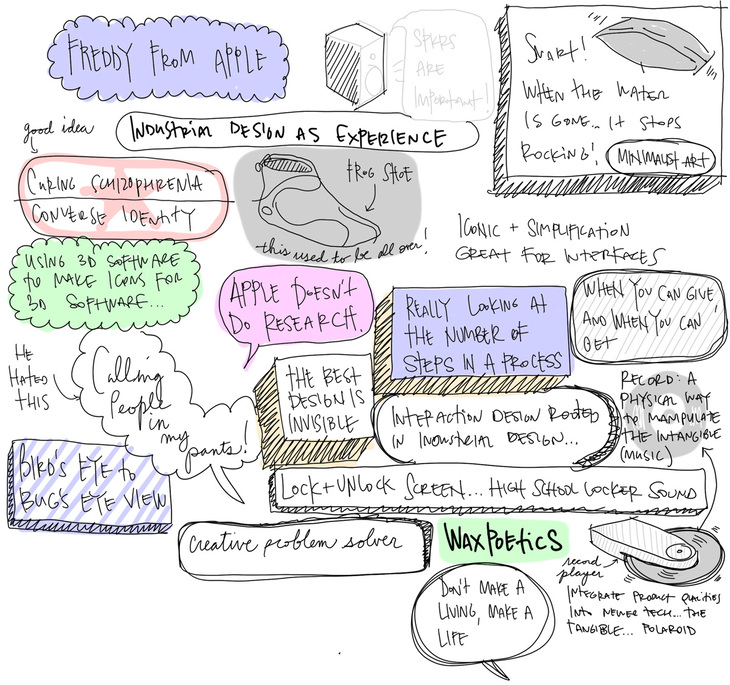 FREDDY FROM APPLE
SPKRS
ARE
IMPORTANT!
SMART!
WHEN THE WATER
IS GONE... IT STOPS
ROCKING!
MINIMALIST ART
good idea
INDUSTRIAL DESIGN AS EXPERIENCE
CURING SCHIZOPHRENIA
CONVERSE IDENTITY
FROG SHOE
this used to be all over!
ICONIC + SIMPLIFICATION
GREAT FOR INTERFACES
USING 3D SOFTWARE
TO MAKE ICONS FOR
3D SOFTWARE...
APPLE DOESN'T
DO RESEARCH.
REALLY LOOKING AT
THE NUMBER OF
STEPS IN A PROCESS
WHEN YOU CAN GIVE,
AND WHEN YOU CAN
GET
HE
HATED
THIS
Calling
People
in
my
pants!
THE BEST
DESIGN IS
INVISIBLE
INTERACTION DESIGN ROOTED
IN INDUSTRIAL DESIGN...
RECORD: A
PHYSICAL WAY
TO MANIPULATE
THE INTANGIBLE
(MUSIC)
BIRD'S EYE to
BUG'S EYE VIEW
LOCK+UNLOCK SCREEN... HIGH SCHOOL LOCKER SOUND
creative problem solver
WAXPOETICS
record
player
DON'T MAKE A
LIVING, MAKE A
LIFE
INTEGRATE PRODUCT QUALITIES
INTO NEWER TECH... THE
TANGIBLE... POLAROID